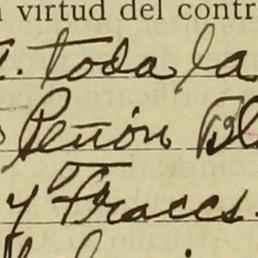 virtud del contr
toda la
Peñón Bl
y Fraccs.